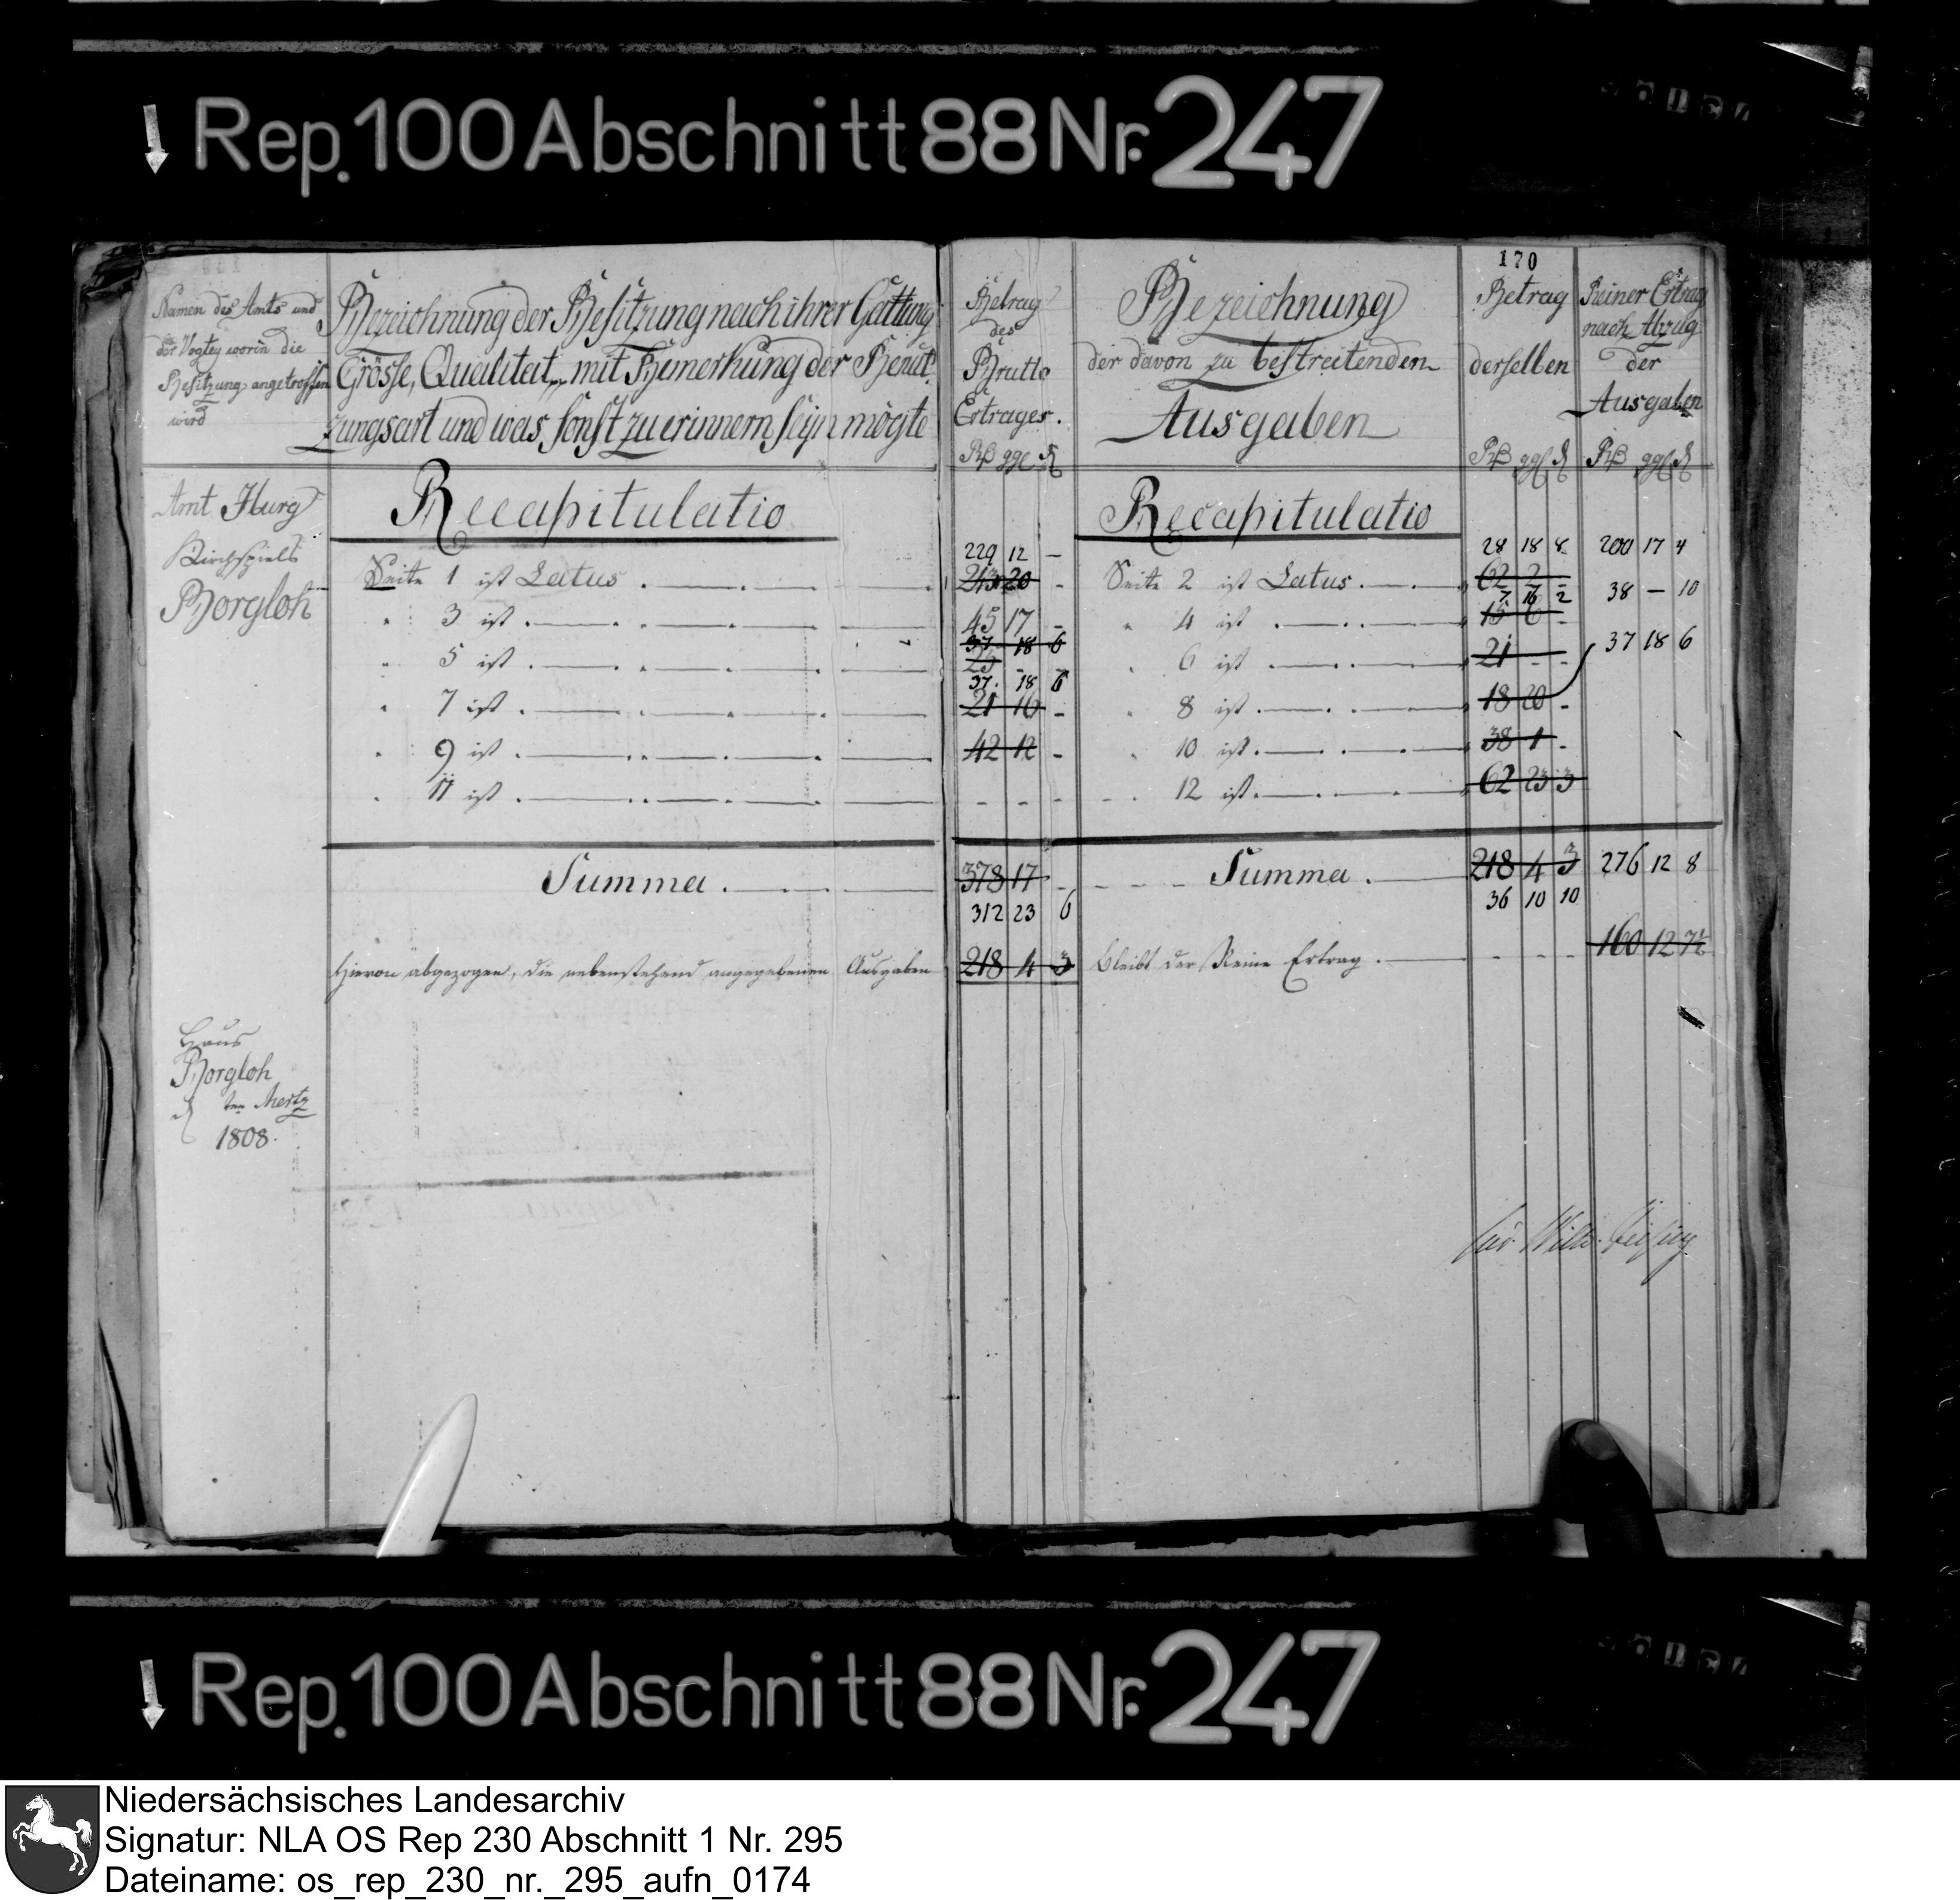 Rep. 100 Abschnitt 88 Nr. 247
170
Namen des Amts und
der Vogtey worin die
Besitzung angetroffen
wird
Bezeichnung der Besitzung nach ihrer Gattung
Grösse, Qualitaet, mit Bemerkung der Benut-
zungsart und was sonst zu erinnern seyn mögte
Betrag
des
Brutto
Ertrages.
Rß ggl ₰
Bezeichnung
der davon zu bestreitenden
Ausgaben
Betrag
derselben
Rß ggl ₰
Reiner Ertrag
nach Abzug
der
Ausgaben
Rß ggl ₰
Amt Iburg
Kirchspiels
Borgloh
Recapitulatio
Recapitulatio
229 12 — 28 18 8 200 17 4
Seite 1 ist Latus 243 20 - Seite 2 ist Latus 62 2 -
7 16 2 38 — 10
" 3 ist 45 17 - " 4 ist 15 6 -
37 18 6 37 18 6
" 5 ist 25 - - " 6 ist 21 - -
37 18 6
" 7 ist 21 16 - " 8 ist 18 20 -
" 9 ist 42 12 - " 10 ist 38 1 -
" 11 ist - - - " 12 ist 62 23 3
Summa 378 17 - Summa 218 4 3 276 12 8
312 23 6 36 10 10
Hievon abgezogen, die nebenstehend angegebenen Ausgaben 218 4 3 bleibt der Reine Ertrag 160 12
Haus
Borgloh
d ten Mertz
1808.
Rep. 100 Abschnitt 88 Nr. 247
Niedersächsisches Landesarchiv
Signatur: NLA OS Rep 230 Abschnitt 1 Nr. 295
Dateiname: os_rep_230_nr._295_aufn_0174